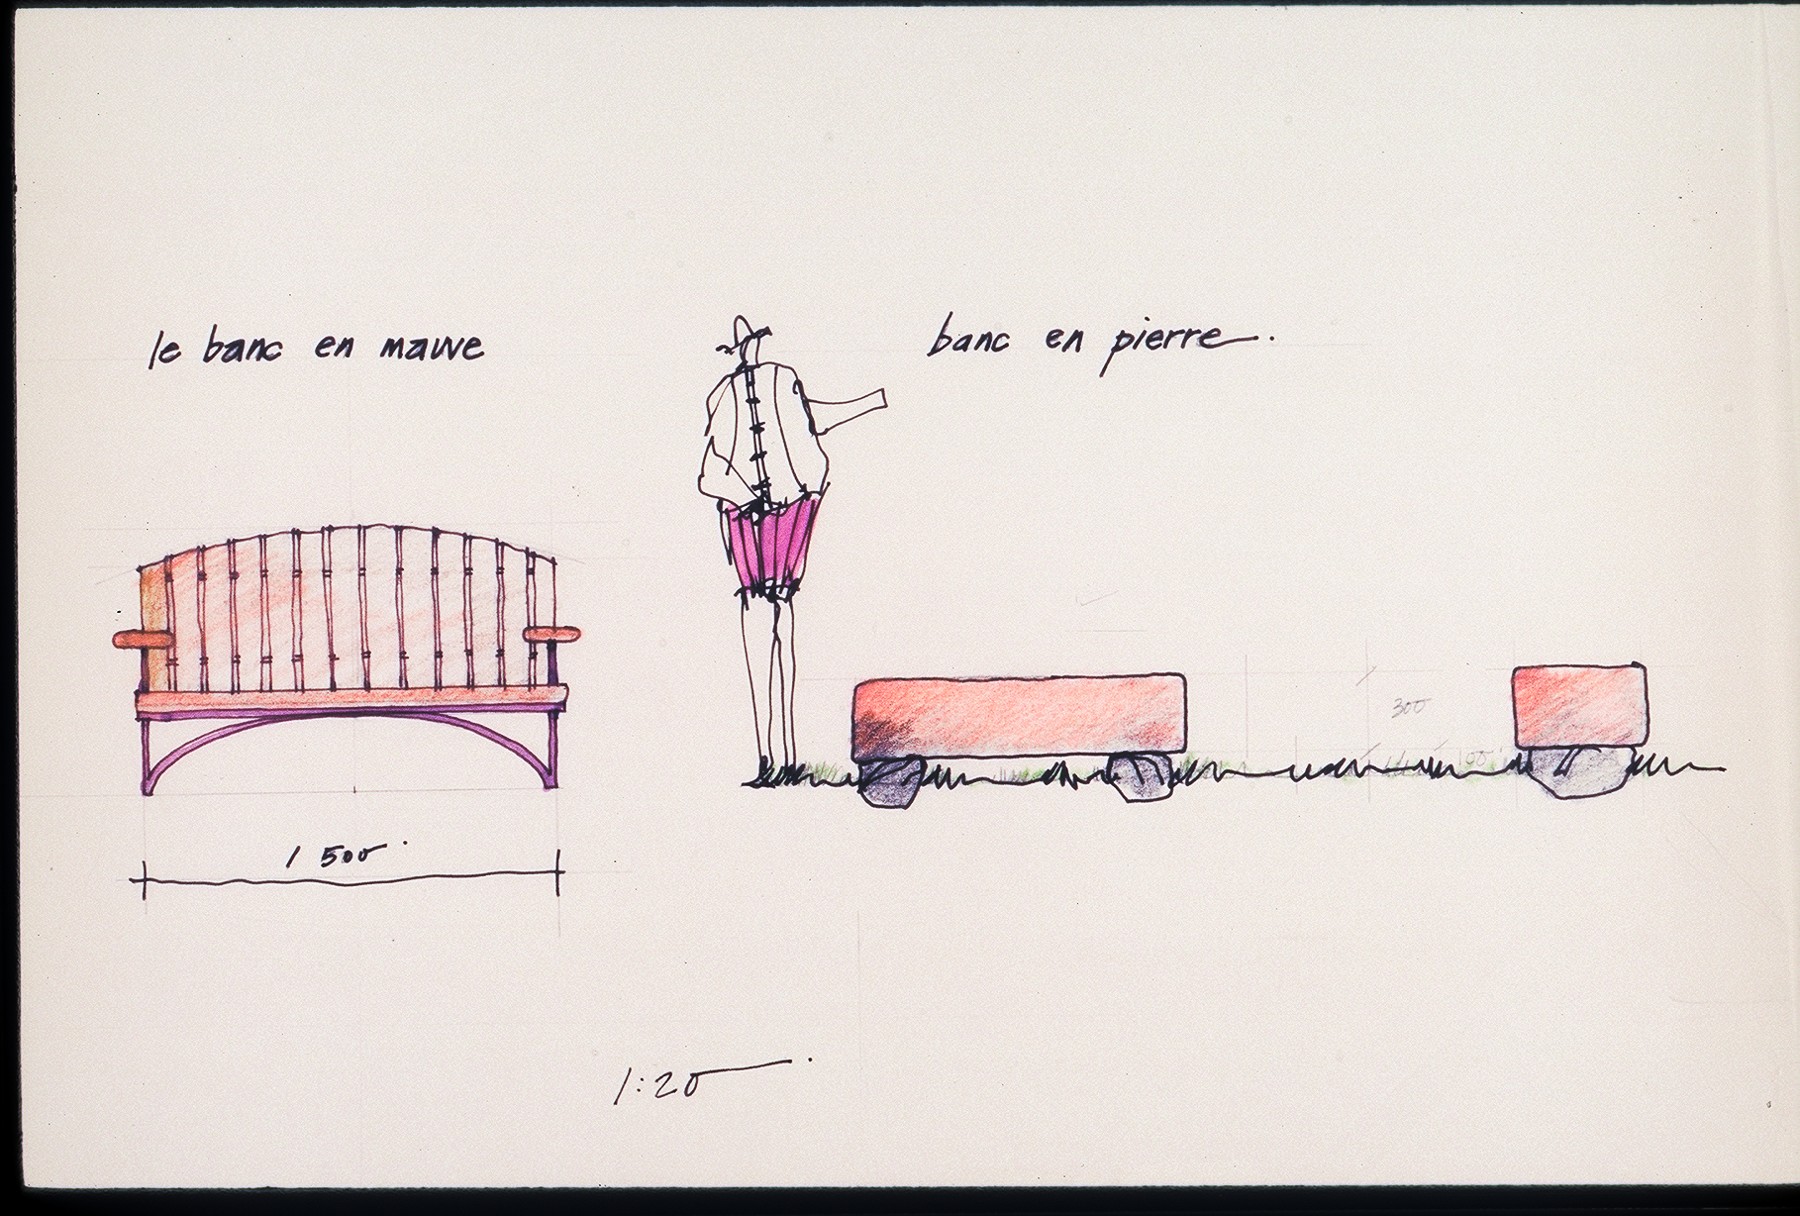 le banc en mauve
banc en pierre.
300
1 500
1:20